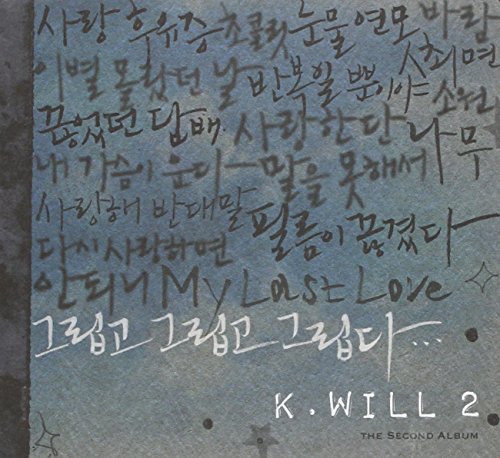 사랑 후유증 초콜릿 눈물 연모 바람
이별 몰랐던 날 반복일 뿐이야 최면 소원
끊었던 담배 사랑한단 나무
내 가슴이 운다 말을 못해서
사랑해 반대말 필름이 끊겼다
다시 사랑하면
안되니 My Last Love
그립고 그립고 그립다...
K.WILL 2
THE SECOND ALBUM